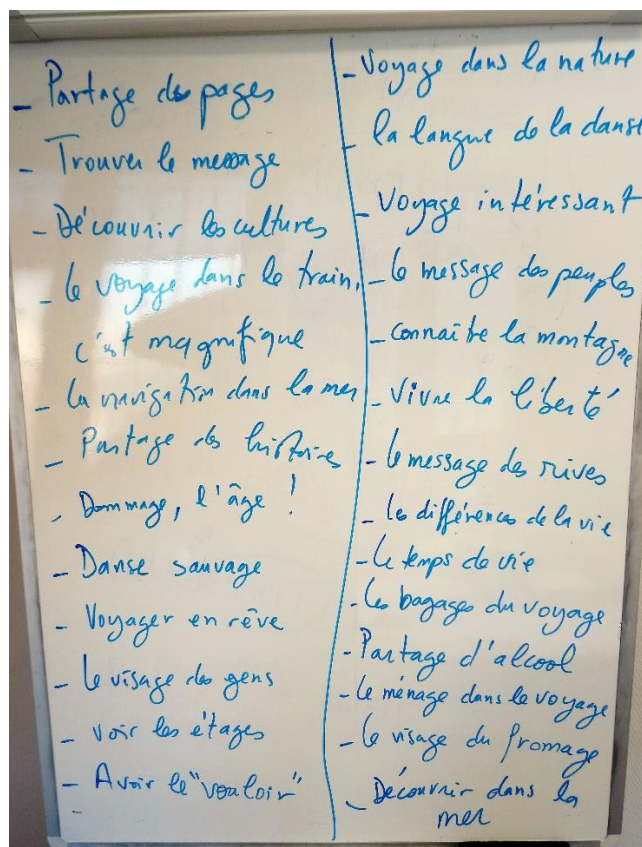 - Partage des pages
- Trouver le message
- Découvrir les cultures
- le voyage dans le train,
c'est magnifique
- La navigation dans la mer
- Partage des histoires
- Dommage, l'âge !
- Danse sauvage
- Voyager en rêve
- Le visage des gens
- Voir les étages
- Avoir le "vouloir"
- Voyage dans la nature
- la langue de la danse
- Voyage intéressant
- le message des peuples
- connaître la montagne
- Vivre la liberté
- le message des rives
- les différences de la vie
- Le temps de vie
- Les bagages du voyage
- Partage d'alcool
- Le ménage dans le voyage
- le visage du fromage
- Découvrir dans la
mer